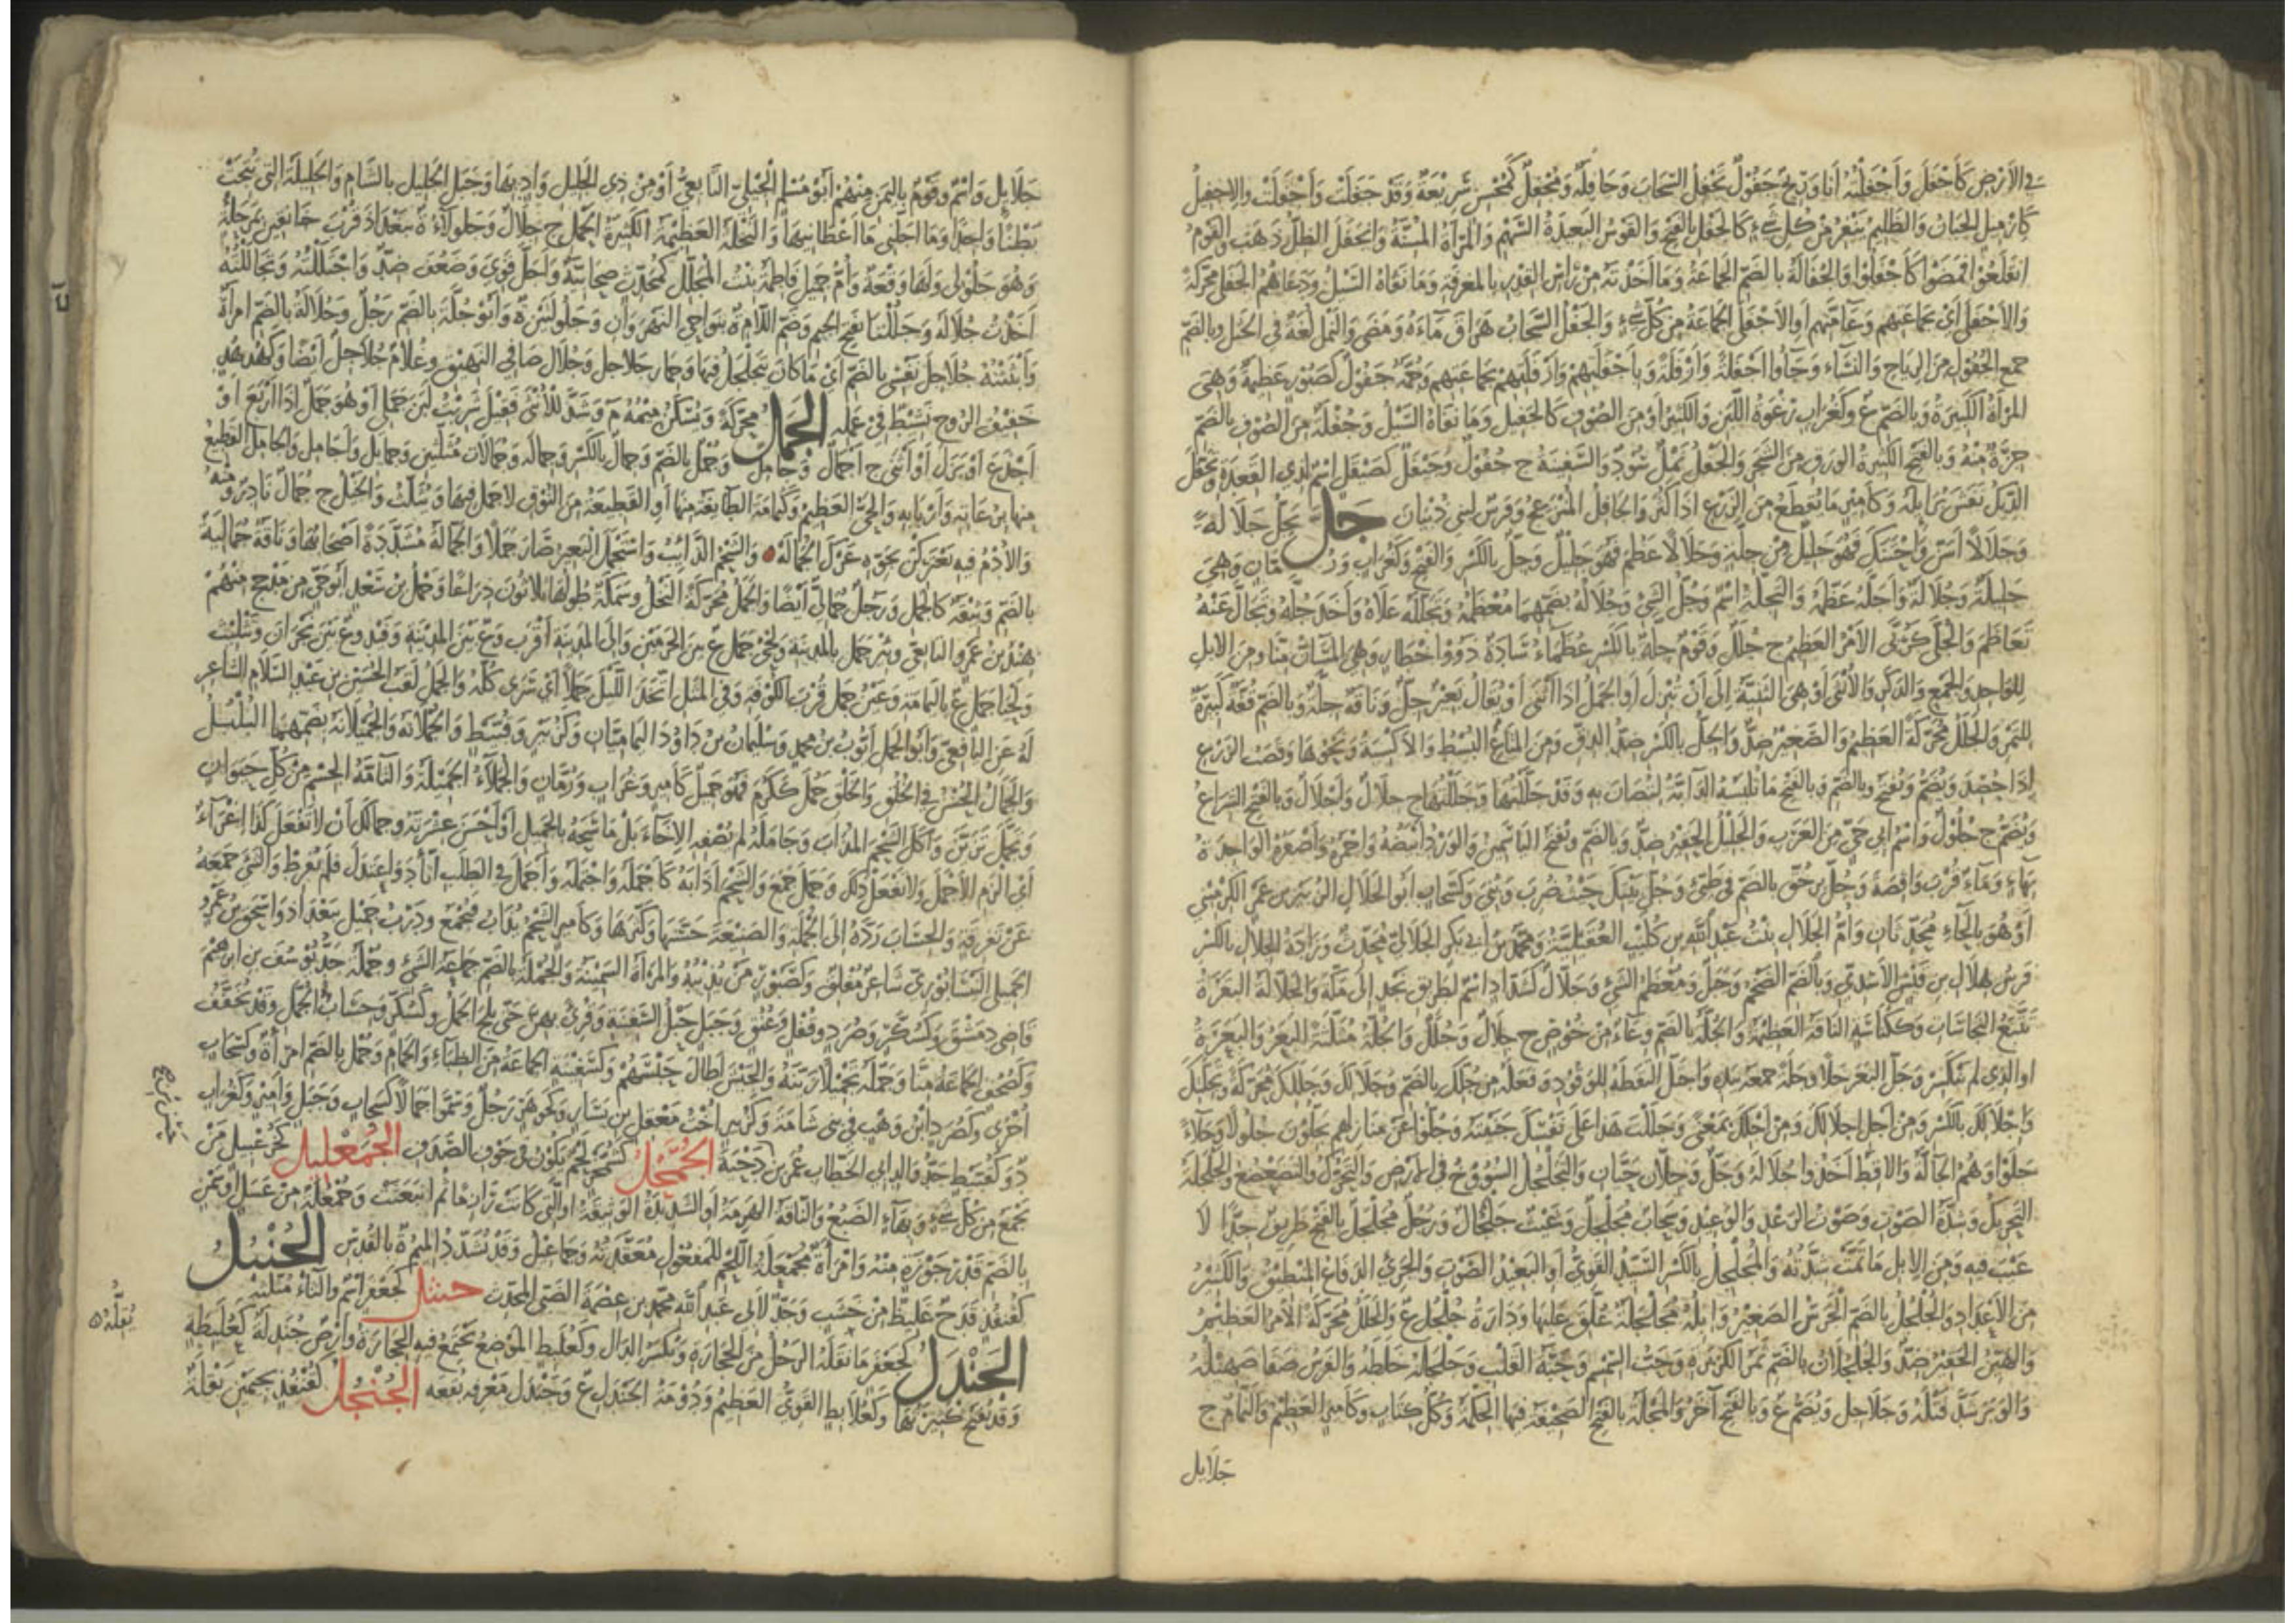 في الأرض كأجفل وأجفلته أنا وريح جفول تجفل السحاب وجافلة ومجفل كمحسن سريعة وقد جفلت وأجفلت والإجفيل
كإزميل الجبان والظليم ينفر من كل شيء كالجفل بالفتح والقوس البعيدة السهم والمرأة المسنة وانجفل الظل ذهب والقوم
انقلعوا فمضوا كأجفلوا والجفالة بالضم الجماعة وما أخذته من رأس القدر بالمغرفة وما نفاه السيل ودعاهم الجفلى محركة
والأجفلى أي بجماعتهم وعامتهم أو الأجفلى الجماعة من كل شيء والجفل السحاب هراق ماءه ومضى والنمل لغة في الجثل وبالضم
جمع الجفول من الرياح والنساء وجاؤا أجفلة وأزفلة وبأجفلتهم وأزفلتهم بجماعتهم وجمة جفول كصبور عظيمة وهي
المرأة الكبيرة وبالضم ع وكغراب رغوة اللبن والكثير أو من الصوف كالجفيل وما نفاه السيل وجفلة من الصوف بالضم
جزة منه وبالفتح الكثيرة الورق من الشجر والجفل نمل سود والسفينة ج جفول وجيفل كصيقل اسم لذي القعدة وتجفل
الديك نفش برائله وكأمير ما يقطع من الزرع إذا كثر والجافل المنزعج وفرس لبني ذبيان جل يجل جلالة
وجلالا أسن واحتنك فهو جليل من جلة وجلالا عظم فهو جليل وجل بالكسر والفتح وكغراب ورمان وهي
جليلة وجلالة وأجله عظمه والتجلة اسم وجل الشيء وجلاله بضمهما معظمه وتجلله علاه وأخذ جله وتجال عنه
تعاظم والجلى كربى الأمر العظيم ج جلل وقوم جلة بالكسر عظماء سادة ذووا أخطار وهي المسان منا ومن الإبل
للواحد والجمع والذكر والأنثى أو هي الثنية إلى أن تبزل أو الجمل إذا أثنى أو يقال بعير جل وناقة جلة وبالضم قفة كبيرة
للتمر والجلل محركة العظيم والصغير ضد والجل بالكسر ضد الدق ومن المتاع البسط والأكسية ونحوها وقصب الزرع
إذا حصد ويضم ويفتح وبالضم وبالفتح ما تلبسه الدابة لتصان به وقد جللتها وجللتها ج جلال وأجلال وبالفتح الشراع
ويضم ج جلول واسم أبي حي من العرب والجليل الحقير ضد وبالضم ويفتح الياسمين والورد أبيضه وأحمره وأصفره الواحدة
بهاء وماء قرب واقصة وجل بن حق بالضم في طيئ وجل بيتك حيث ضرب وبني وكسحاب أبو الجلال الزبير بن عمر الكرميني
أو هو بالحاء محدثان وأم الجلال بنت عبد الله بن كليب العقيلية ومحمد بن أبي بكر الجلالي محدث وزادة الجلال بالكسر
فرس هلال بن قيس الأسدي وبالضم الضخم وجل ومعظم الشيء وجلال كشداد اسم لطريق نجد إلى مكة والجلالة البقرة
تتبع النجاسات وككناسة الناقة العظيمة والجلة بالضم وعاء من خوص ج جلال وجلل والجلة مثلثة البعر والبعرة
أو الذي لم ينكسر وجل البعر جلا وجلة جمعه بيده واجتل التقطه للوقود وفعله من جلك بالضم وجلالك وجللك محركة وتجلتك
وإجلالك بالكسر ومن أجل إجلالك ومن أجلك بمعنى وجللت هذا على نفسك جنيته وجلوا عن منازلهم يجلون جلولا وجلاء
جلوا وهم الجالة والأقط أخذوا جلاله وجل وجلان حيان والتجلجل السؤوخ في الأرض والتحرك والتضعضع والجلجلة
التحريك وشدة الصوت وصوت الرعد والوعيد وسحاب مجلجل وغيث جلجال ورجل مجلجل بالفتح ظريف جدا لا
عيب فيه ومن الإبل ما تمت شدته والمجلجل بالكسر السيد القوي أو البعيد الصوت والجريء الدفاع المنطيق والكثير
من الأعداد والجلجل بالضم الجرس الصغير وإبل مجلجلة علق عليها ودارة جلجل ع والجلل محركة الأمر العظيم
والهين الحقير ضد والجلجلان بالضم ثمر الكزبرة وحب السمسم وحبة القلب وجلجله خلطه والفرس صفا صهيله
والوتر شد فتله وجلاجل ويضم ع وبالفتح آخر والمجلة بالفتح الصحيفة فيها الحكمة وكل كتاب وكأمير العظيم والثمام ج
جلايل
جلايل واسم وقوم باليمن منهم أبو مسلم الجليلي التابعي أو من ذي الجليل واد بها وجبل الجليل بالشام والجليلة التي نتجت
بطنا واحدا وما أجلني ما أعطانيها والنخلة العظيمة الكثيرة الحمل ج جلال وجلولاء ة ببغداد قرب خانقين بمرحلة
وهو جلولي ولها وقعة وأم جميل فاطمة بنت المجلل كمحدث صحابية وأجل قوي وضعف ضد واجتللته وتجاللته
أخذت جلاله وجللتا بفتح الجيم وضم اللام ة بنواحي النهروان وجلولتين ة وأبو جلة بالضم رجل وجلالة بالضم امرأة
وأثنثته جلاجل نفسي بالضم أي ما كان يتجلجل فيها وحمار جلاجل وجلال صافي النهيق وغلام جلاجل أيضا وكهدهد
خفيف الروح نشيط في عمله الجمل محركة ويسكن ميمه م وشذ للأنثى فقيل شربت لبن جملي أو هو جمل إذا أربع أو
أجذع أو بزل أو أثنى ج أجمال وجامل وجمل بالضم وجمال بالكسر وجمالة وجمالات مثلثين وجمايل وأجامل والجامل القطيع
منها برعاته وأربابه والحي العظيم وكثمامة الطائفة منها أو القطيعة من النوق لا جمل فيها ويثلث والخيل ج جمال نادر ومنه
والأدم فيه يعتركن بجوه عرك الجماله والشحم الذائب واستجمل البعير صار جملا والجمالة مشددة أصحابها وناقة جمالية
بالضم وثيقة كالجمل ورجل جمالي أيضا والجمل محركة النخل وسمكة طولها ثلاثون ذراعا وجمل بن سعد أبو حي من مذحج منهم
هند بن عمرو التابعي وبئر جمل بالمدينة ولحي جمل ع بين الحرمين وإلى المدينة أقرب وع بين المدينة وفيد وع بين نجران وتثليث
ولحيا جمل ع باليمامة وعين جمل قرب الكوفة وفي المثل اتخذ الليل جملا أي سرى كله والجمل لقب الحسين بن عبد السلام الشاعر
له عن الشافعي وأبو الجمل أيوب بن محمد وسليمان بن داود اليماميان وكزبير وقبيط والجملانة والجميلانة بضمهما البلبل
والجمال الحسن في الخلق والخلق جمل ككرم فهو جميل كأمير وغراب ورمان والجملاء الجميلة والتامة الجسم من كل حيوان
وتجمل تزين وأكل الشحم المذاب وجامله لم يصفه الإخاء بل ماسحه بالجميل أو أحسن عشرته وجمالك أن لا تفعل كذا إغراء
أي الزم الأجمل ولا تفعل ذلك وجمل جمع والشحم أذابه كأجمله واجتمله وأجمل في الطلب اتأد واعتدل فلم يفرط والشيء جمعه
عن تفرقة والحساب رده إلى الجملة والصنيعة حسنها وكثرها وكأمير الشحم يذاب فيجمع ودرب جميل ببغداد وإسحق بن عمرو
الجميلي النيسابوري شاعر مفلق وكصبور من يذيبه والمرأة السمينة والجملة بالضم جماعة الشيء وجملة جد يوسف بن إبرهيم
قاضي دمشق وكسكر وصرد وقفل وعنق وجبل حبل السفينة وقرئ بهن حتى يلج الجمل وكسكر حساب الجمل وقد يخفف
وكصحف الجماعة منا وجمله تجميلا زينه والجيش أطال حبسهم وكسفينة الجماعة من الظباء والحمام وجمل بالضم امرأة وكسحاب
أخرى وكصرد ابن وهب في بني سامة وكزبير أخت معقل بن يسار وكجوهر رجل وسموا جمالا كسحاب وجبل وأمير وكغراب
د وكقبيط جد والد أبي الخطاب عمر بن دحية الجمحل كسمع لحم يكون في جوف الصدف الجمعليل كخزعبيل من
يجمع من كل شيء وبهاء الضبع والناقة الهرمة أو الشديدة الوثيقة أو التي كانت رازما ثم انبعثت وجمعلة من عسل أو سمن
بالضم قدر جوزة منه وامرأة مجمعلة اللحم للمفعول معقدته وجماعيل وقد تشدد الميم ة بالقدس الجنبل
كقنفذ قدح غليظ من خشب وجد لأبي عبد الله محمد بن عصمة الضبي المحدث جنثل كجعفر اسم والثاء مثلثة
الجندل كجعفر ما يقله الرجل من الحجارة وتكسر الدال وكعلبط الموضع تجتمع فيه الحجارة وأرض جندلة كعلبطة
وقد تفتح كثيرتها وكعلابط القوي العظيم ودومة الجندل ع وجندل معرفة بقعة الجنجل كقنفذ بجيمين بقلة